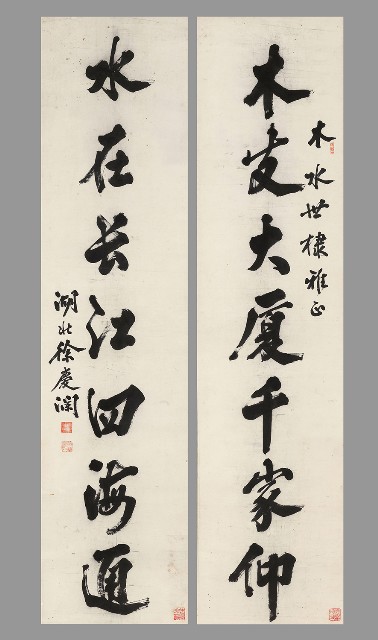 木水世棣雅正
木支大厦千家仰
水在长江四海通
湖北徐慶